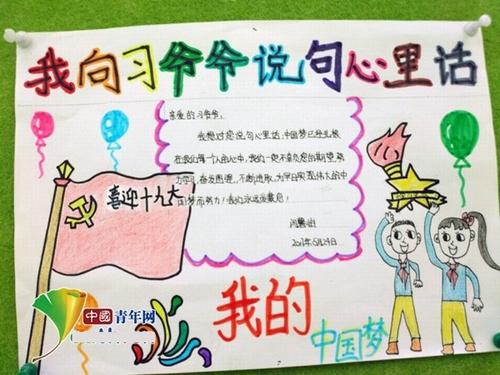 我向习爷爷说句心里话
亲爱的习爷爷,
我想对您说句心里话,中国梦已经扎根
在我们每个人的心中,我们一定不辜负您的期望,努
力学习,奋发图强,不断进取,为早日实现伟大的中
国梦而努力!我们永远爱戴您!
2017年5月24日
喜迎十九大
我的
中国梦
中國青年网